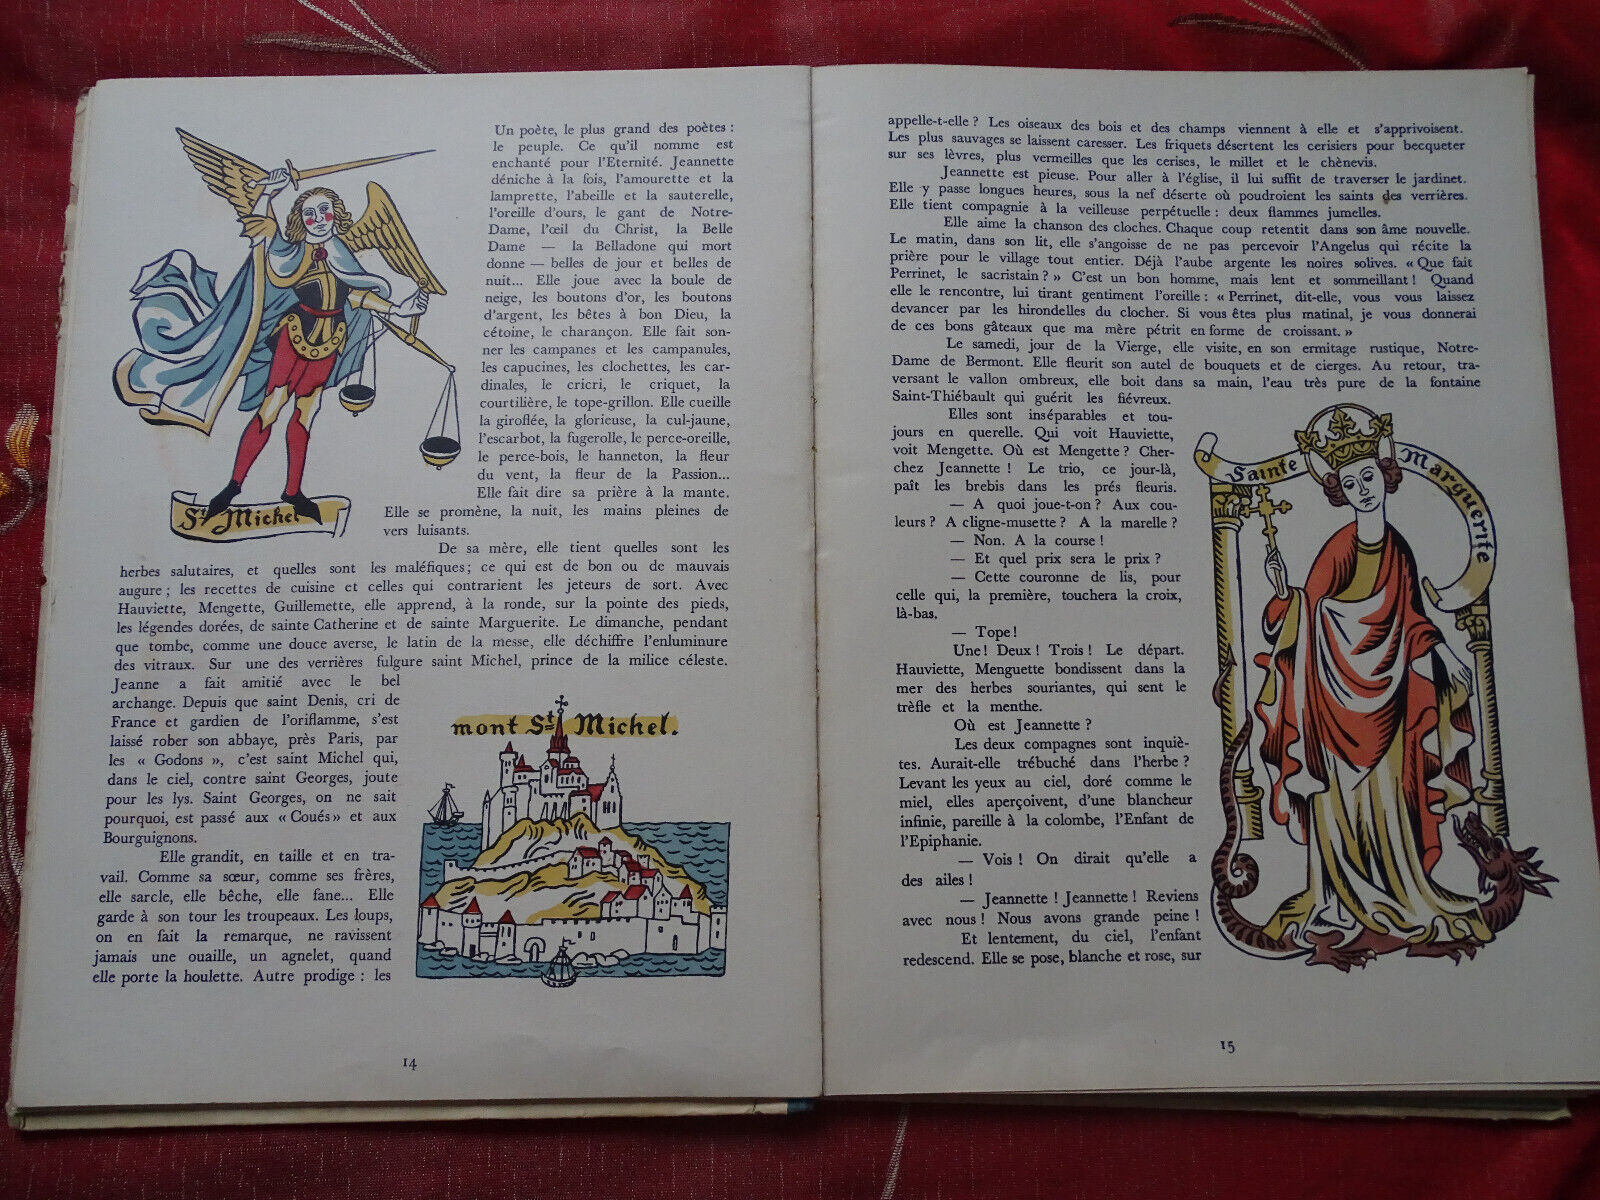 St Michel
Un poète, le plus grand des poètes :
le peuple. Ce qu'il nomme est
enchanté pour l'Eternité. Jeannette
déniche à la fois, l'amourette et la
lamprette, l'abeille et la sauterelle,
l'oreille d'ours, le gant de Notre-
Dame, l'œil du Christ, la Belle
Dame — la Belladone qui mort
donne — belles de jour et belles de
nuit... Elle joue avec la boule de
neige, les boutons d'or, les boutons
d'argent, les bêtes à bon Dieu, la
cétoine, le charançon. Elle fait son-
ner les campanes et les campanules,
les capucines, les clochettes, les car-
dinales, le cricri, le criquet, la
courtilière, le tope-grillon. Elle cueille
la giroflée, la glorieuse, la cul-jaune,
l'escarbot, la fugerolle, le perce-oreille,
le perce-bois, le hanneton, la fleur
du vent, la fleur de la Passion...
Elle fait dire sa prière à la mante.
Elle se promène, la nuit, les mains pleines de
vers luisants.
De sa mère, elle tient quelles sont les
herbes salutaires, et quelles sont les maléfiques ; ce qui est de bon ou de mauvais
augure ; les recettes de cuisine et celles qui contrarient les jeteurs de sort. Avec
Hauviette, Mengette, Guillemette, elle apprend, à la ronde, sur la pointe des pieds,
les légendes dorées, de sainte Catherine et de sainte Marguerite. Le dimanche, pendant
que tombe, comme une douce averse, le latin de la messe, elle déchiffre l'enluminure
des vitraux. Sur une des verrières fulgure saint Michel, prince de la milice céleste.
Jeanne a fait amitié avec le bel
archange. Depuis que saint Denis, cri de
France et gardien de l'oriflamme, s'est
laissé rober son abbaye, près Paris, par
les « Godons », c'est saint Michel qui,
dans le ciel, contre saint Georges, joute
pour les lys. Saint Georges, on ne sait
pourquoi, est passé aux « Coués » et aux
Bourguignons.
Elle grandit, en taille et en tra-
vail. Comme sa sœur, comme ses frères,
elle sarcle, elle bêche, elle fane... Elle
garde à son tour les troupeaux. Les loups,
on en fait la remarque, ne ravissent
jamais une ouaille, un agnelet, quand
elle porte la houlette. Autre prodige : les
mont St Michel.
14
appelle-t-elle ? Les oiseaux des bois et des champs viennent à elle et s'apprivoisent.
Les plus sauvages se laissent caresser. Les friquets désertent les cerisiers pour becqueter
sur ses lèvres, plus vermeilles que les cerises, le millet et le chènevis.
Jeannette est pieuse. Pour aller à l'église, il lui suffit de traverser le jardinet.
Elle y passe longues heures, sous la nef déserte où poudroient les saints des verrières.
Elle tient compagnie à la veilleuse perpétuelle : deux flammes jumelles.
Elle aime la chanson des cloches. Chaque coup retentit dans son âme nouvelle.
Le matin, dans son lit, elle s'angoisse de ne pas percevoir l'Angelus qui récite la
prière pour le village tout entier. Déjà l'aube argente les noires solives. « Que fait
Perrinet, le sacristain ? » C'est un bon homme, mais lent et sommeillant ! Quand
elle le rencontre, lui tirant gentiment l'oreille : « Perrinet, dit-elle, vous vous laissez
devancer par les hirondelles du clocher. Si vous êtes plus matinal, je vous donnerai
de ces bons gâteaux que ma mère pétrit en forme de croissant. »
Le samedi, jour de la Vierge, elle visite, en son ermitage rustique, Notre-
Dame de Bermont. Elle fleurit son autel de bouquets et de cierges. Au retour, tra-
versant le vallon ombreux, elle boit dans sa main, l'eau très pure de la fontaine
Saint-Thiébault qui guérit les fiévreux.
Elles sont inséparables et tou-
jours en querelle. Qui voit Hauviette,
voit Mengette. Où est Mengette ? Cher-
chez Jeannette ! Le trio, ce jour-là,
paît les brebis dans les prés fleuris.
— A quoi joue-t-on ? Aux cou-
leurs ? A cligne-musette ? A la marelle ?
— Non. A la course !
— Et quel prix sera le prix ?
— Cette couronne de lis, pour
celle qui, la première, touchera la croix,
là-bas.
— Tope !
Une ! Deux ! Trois ! Le départ.
Hauviette, Menguette bondissent dans la
mer des herbes souriantes, qui sent le
trèfle et la menthe.
Où est Jeannette ?
Les deux compagnes sont inquiè-
tes. Aurait-elle trébuché dans l'herbe ?
Levant les yeux au ciel, doré comme le
miel, elles aperçoivent, d'une blancheur
infinie, pareille à la colombe, l'Enfant de
l'Epiphanie.
— Vois ! On dirait qu'elle a
des ailes !
— Jeannette ! Jeannette ! Reviens
avec nous ! Nous avons grande peine !
Et lentement, du ciel, l'enfant
redescend. Elle se pose, blanche et rose, sur
Sainte Marguerite
15